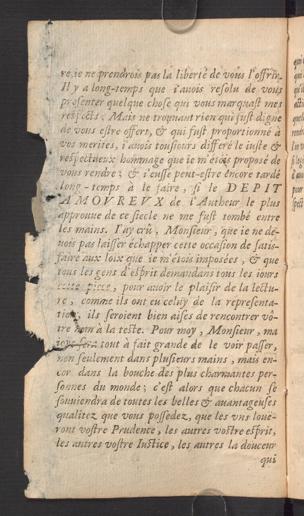 re, ie ne prendrois pas la liberté de vous l'offrir.
Il y a long-temps que i'auois resolu de vous
presenter quelque chose qui vous marquast mes
respects; Mais ne trouuant rien qui fust digne
de vous estre offert, & qui fust proportionné à
vos merites, i'auois tousiours differé le iuste &
respectueux hommage que ie m'étois proposé de
vous rendre; & i'eusse peut-estre encore tardé
long-temps à le faire, si le DEPIT
AMOVREVX de l'Autheur le plus
approuué de ce siecle ne me fust tombé entre
les mains. I'ay crû, Monsieur, que ie ne de-
uois pas laisser échapper cette occasion de satis-
faire aux loix que ie m'étois imposées, & que
tous les gens d'esprit demandans tous les iours
cette piece, pour auoir le plaisir de la lectu-
re, comme ils ont eu celuy de la representa-
tion, ils seroient bien aises de rencontrer vô-
tre nom à la teste. Pour moy, Monsieur, ma
ioye sera tout à fait grande de le voir passer,
non seulement dans plusieurs mains, mais en-
cor dans la bouche des plus charmantes per-
sonnes du monde; c'est alors que chacun se
souuiendra de toutes les belles & auantageuses
qualitez que vous possedez, que les vns louë-
ront vostre Prudence, les autres vostre esprit,
les autres vostre Iustice, les autres la douceur
qui